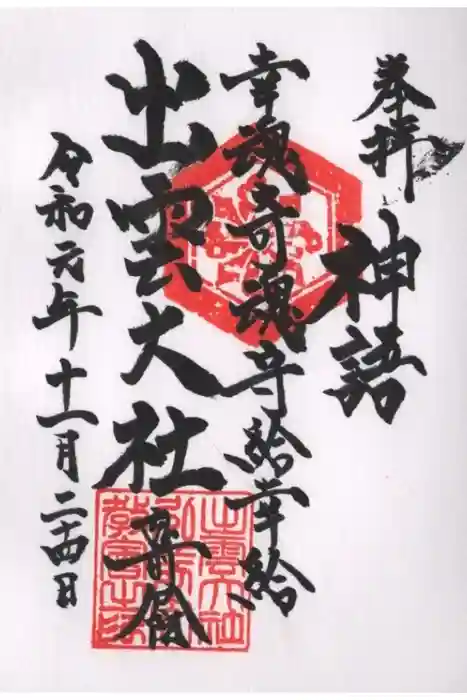 奉拝
神語
幸魂奇魂守給幸給
出雲大社
令和元年十一月二十四日
出雲大社
教會之印